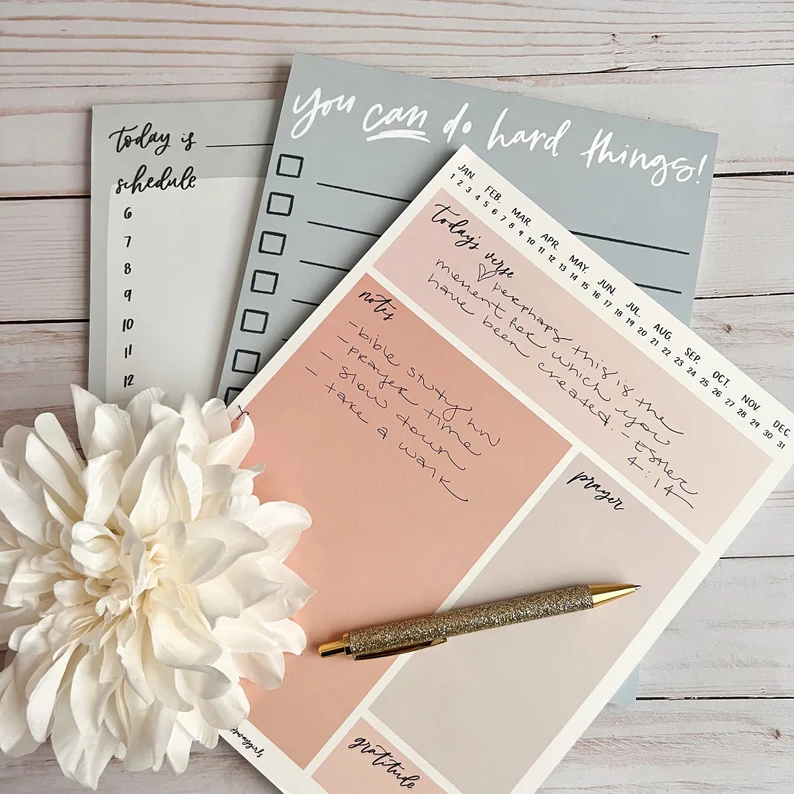 today is
schedule
6
7
8
9
10
11
12
you can do hard things!
JAN. FEB. MAR. APR. MAY. JUN. JUL. AUG. SEP. OCT. NOV. DEC.
1 2 3 4 5 6 7 8 9 10 11 12 13 14 15 16 17 18 19 20 21 22 23 24 25 26 27 28 29 30 31
today's verse
perhaps this is the
moment for which you
have been created. - Esther
4:14
notes
- bible study hw
- prayer time
- slow down
- take a walk
prayer
gratitude